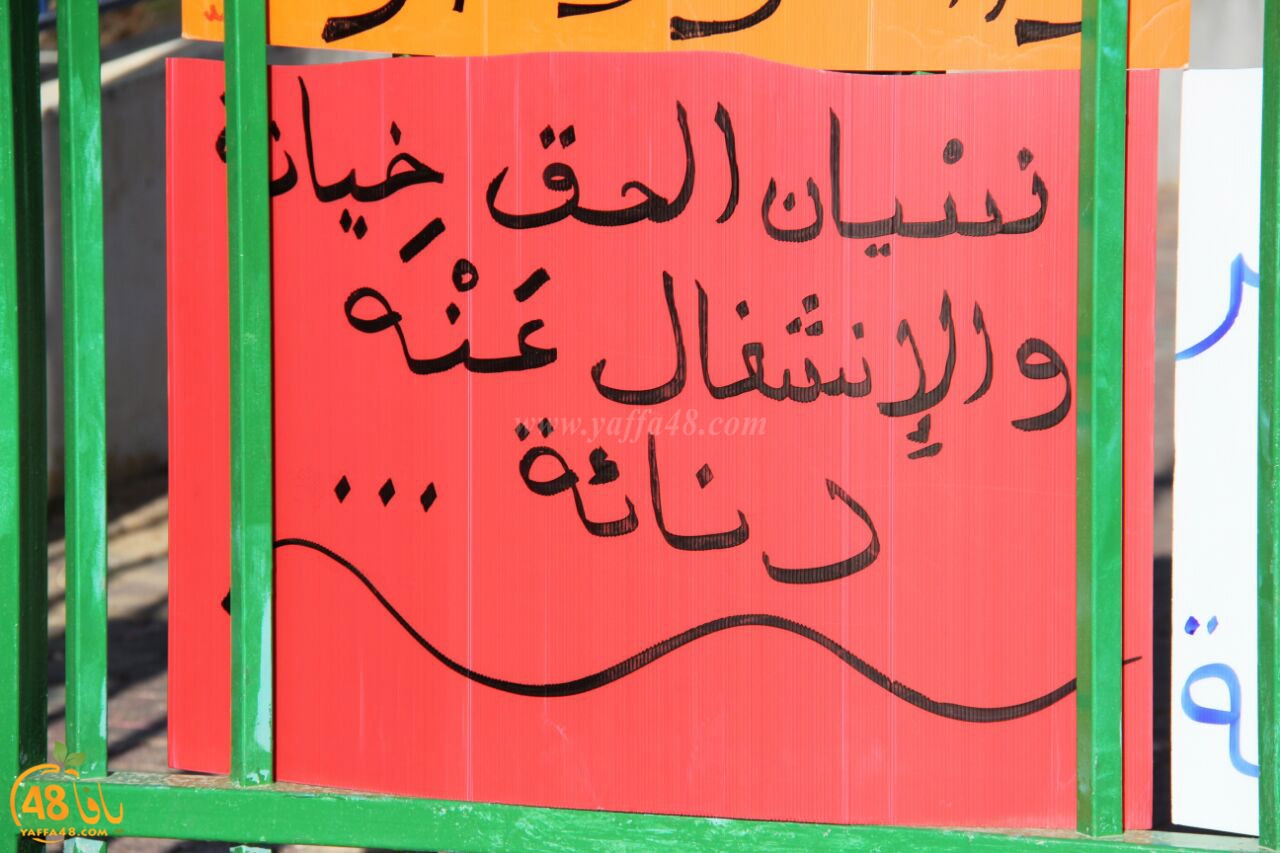 نسيان الحق خِيانة
والإِنشغال عَنْه
دنائة ...
www.yaffa48.com
48 يافا
YAFFA48.COM